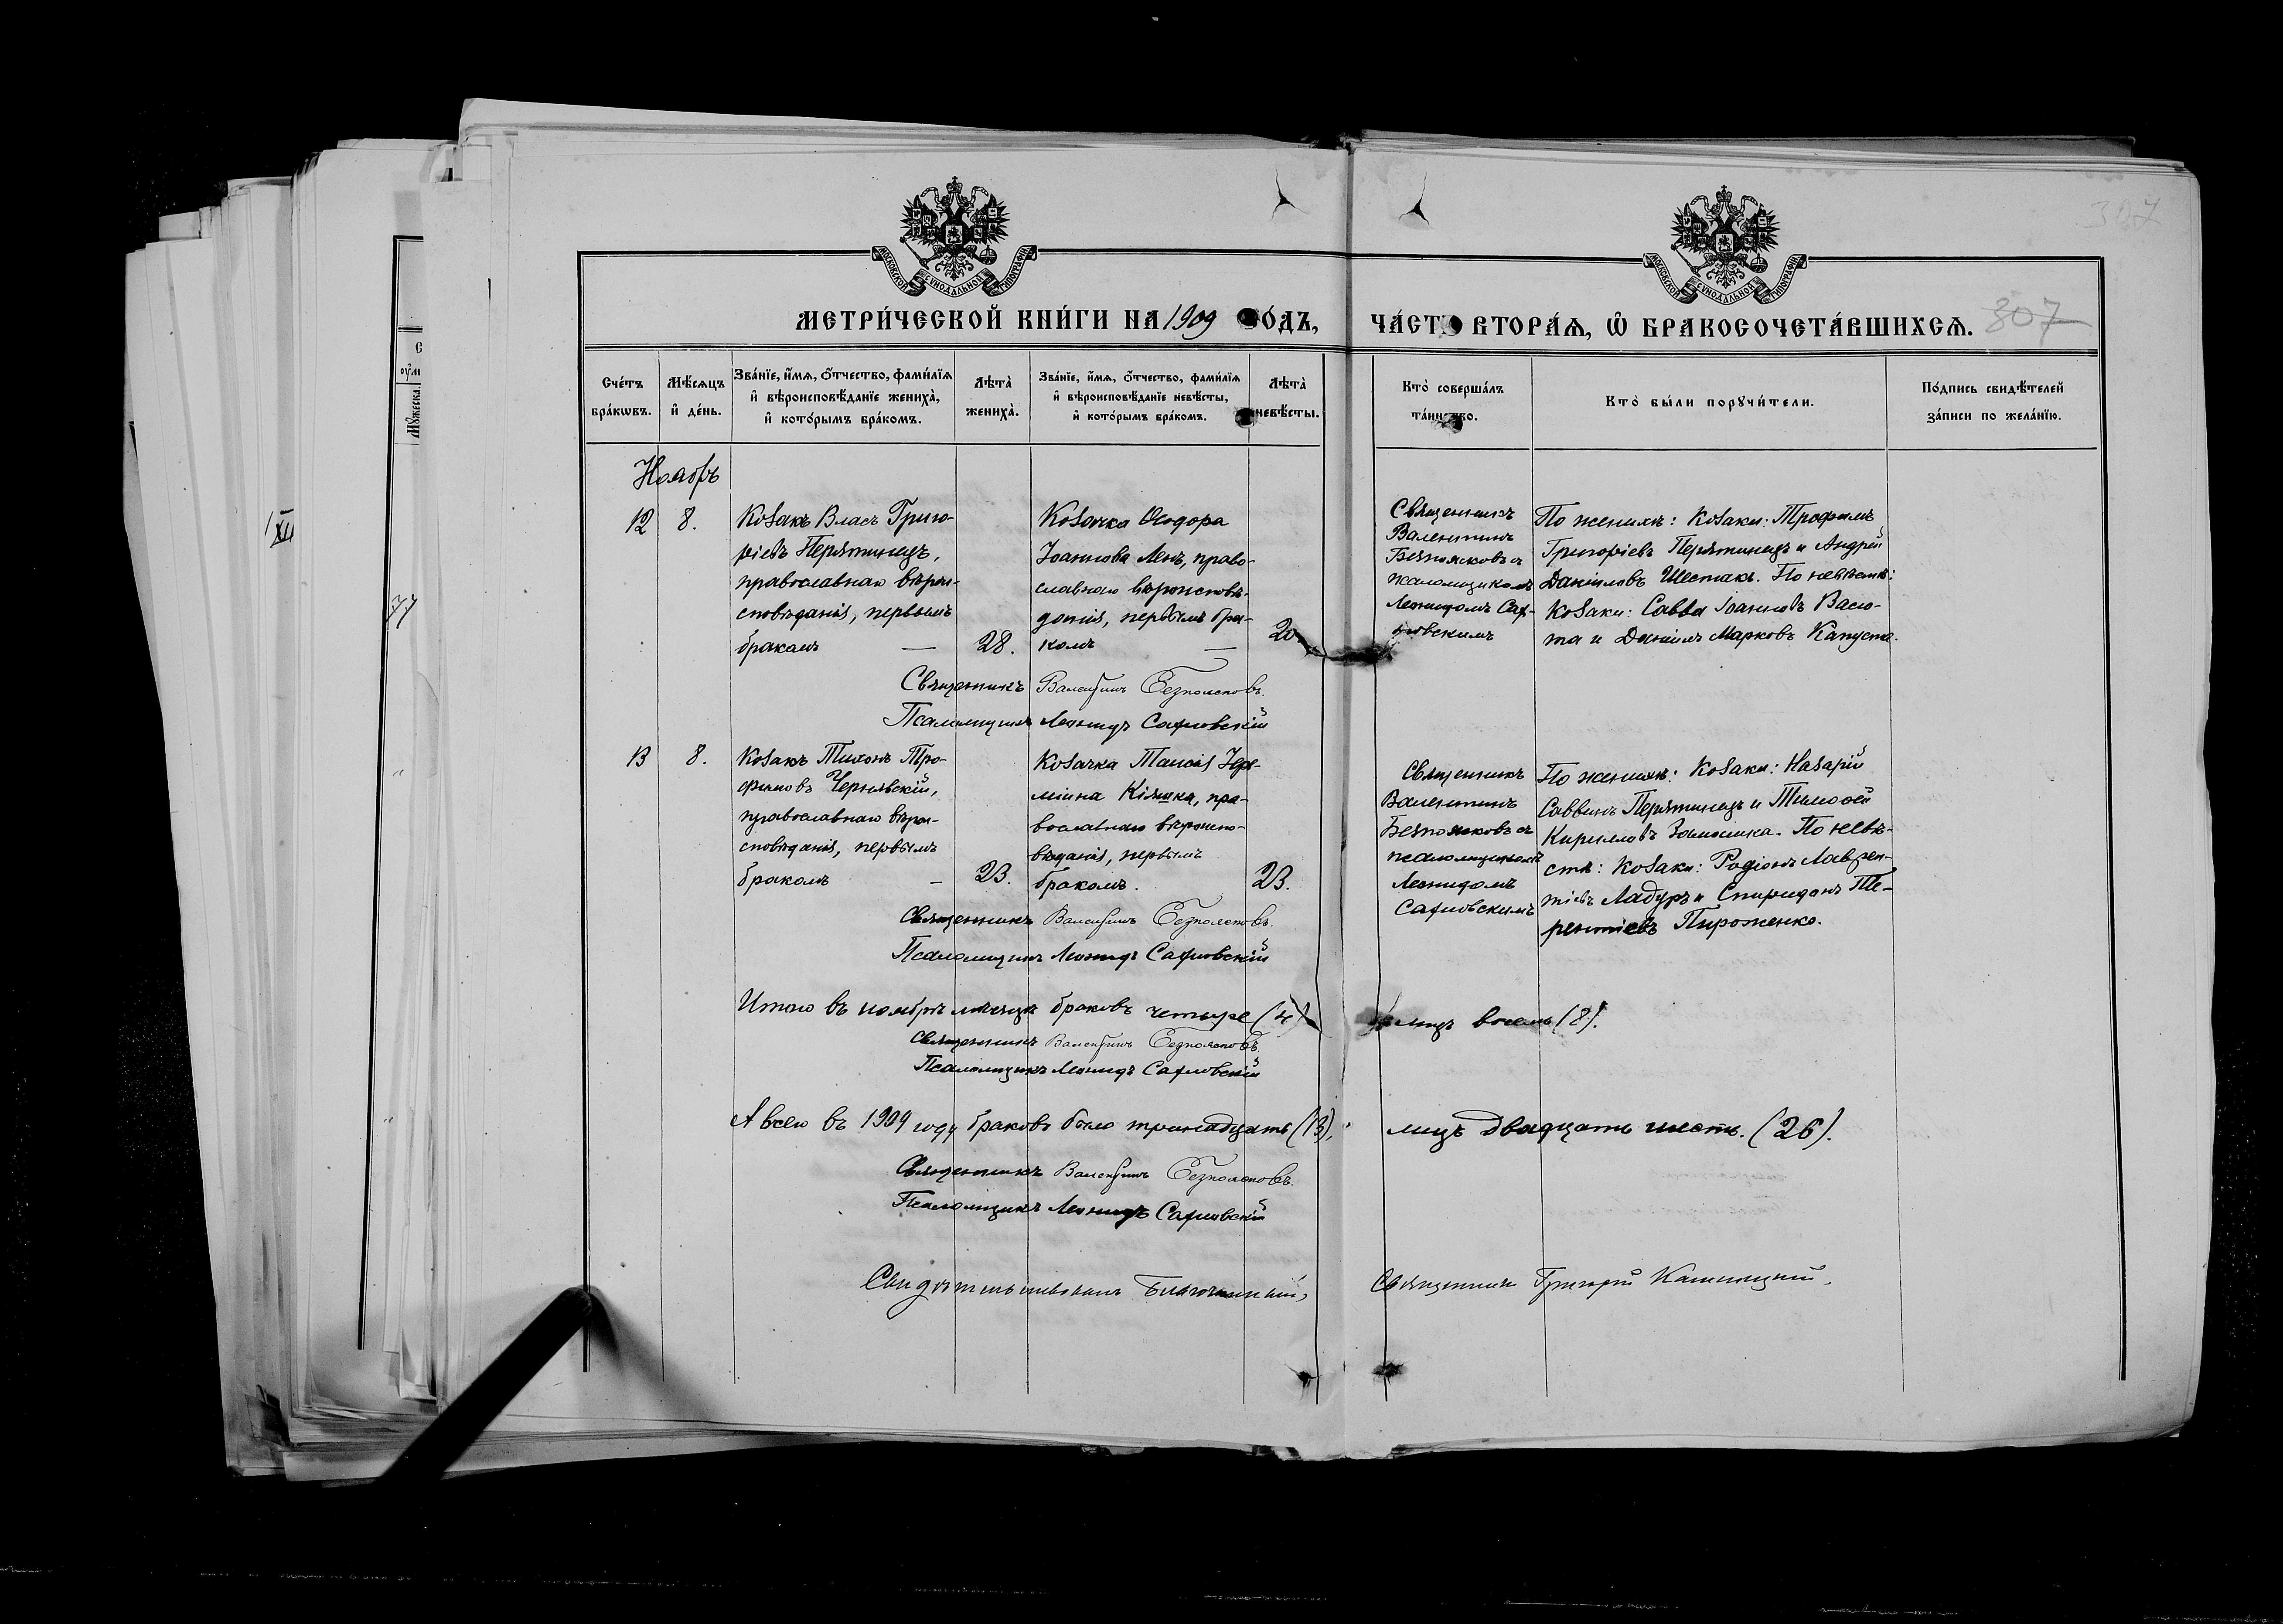 МОСКОВСКОЙ СѴНОДАЛЬНОЙ ТИПОГРАФІИ
МОСКОВСКОЙ СѴНОДАЛЬНОЙ ТИПОГРАФІИ
307
МЕТРИ́ЧЕСКОЙ КНИ́ГИ НА 1909 ГО́ДЪ,
ЧА́СТЬ ВТОРА́Ѧ, Ѽ БРАКОСОЧЕТА́ВШИХСѦ. 307
Сче́тъ бра́кѡвъ.
Мѣ́сѧцъ и҆ де́нь.
Зва́нїе, и҆́мѧ, ѻ҆́тчество, фами́лїѧ и҆ вѣроисповѣ́данїе жениха̀, и҆ кото́рымъ бра́комъ.
Лѣта̀ жениха̀.
Зва́нїе, и҆́мѧ, ѻ҆́тчество, фами́лїѧ и҆ вѣроисповѣ́данїе невѣ́сты, и҆ кото́рымъ бра́комъ.
Лѣта̀ невѣ́сты.
Кто̀ соверша́лъ та́инство.
Кто̀ бы́ли порꙋчи́тели.
По́дпись свидѣ́телей за́писи по жела́нїю.
Ноябрь
12
8.
Козакъ Власъ Григо-
ріевъ Перятинецъ,
православнаго вѣрои-
сповѣданія, первымъ
бракомъ —
28.
Козачка Ѳеодора
Іоаннова Ленъ, право-
славнаго вѣроисповѣ-
данія, первымъ бра-
комъ —
20
Священникъ
Валентинъ
Безпояковъ съ
псаломщикомъ
Леонидомъ
По женихѣ: козаки: Трофимъ
Григоріевъ Перятинецъ и Андрей
Даніиловъ Шестакъ. По невѣстѣ:
козаки: Савва Іоанновъ Васю-
та и Даніилъ Марковъ Капуста.
Священникъ Валентинъ
Псаломщикъ Леонидъ
13
8.
Козакъ Тихонъ Тро-
фимовъ Чернявскій,
православнаго вѣрои-
сповѣданія, первымъ
бракомъ —
23.
Козачка Таисія
Кіяшка, пра-
вославнаго вѣроиспо-
вѣданія, первымъ
бракомъ.
23.
Священникъ
Валентинъ
Безпояковъ съ
псаломщикомъ
Леонидомъ
По женихѣ: козаки: Назарій
Саввинъ Перятинецъ и Тимоѳей
Кирилловъ По невѣ-
стѣ: козаки: Родіонъ Лаврен-
тіевъ Ладуръ и Спиридонъ Те-
рентіевъ Пироженко.
Священникъ Валентинъ
Псаломщикъ Леонидъ
Итого въ ноябрѣ мѣсяцѣ браковъ четыре (4)
лицъ восемь (8).
Священникъ Валентинъ
Псаломщикъ Леонидъ
А всего въ 1909 году браковъ было тринадцать (13),
лицъ двадцать шесть. (26).
Священникъ Валентинъ
Псаломщикъ Леонидъ
Свидѣтельствовалъ Благочинный,
Священникъ Григорій
XII
77